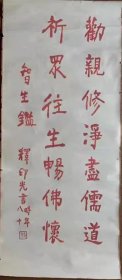 勸親修淨盡儒道
祈眾往生暢佛懷
智生鑑
釋印光書時年八十